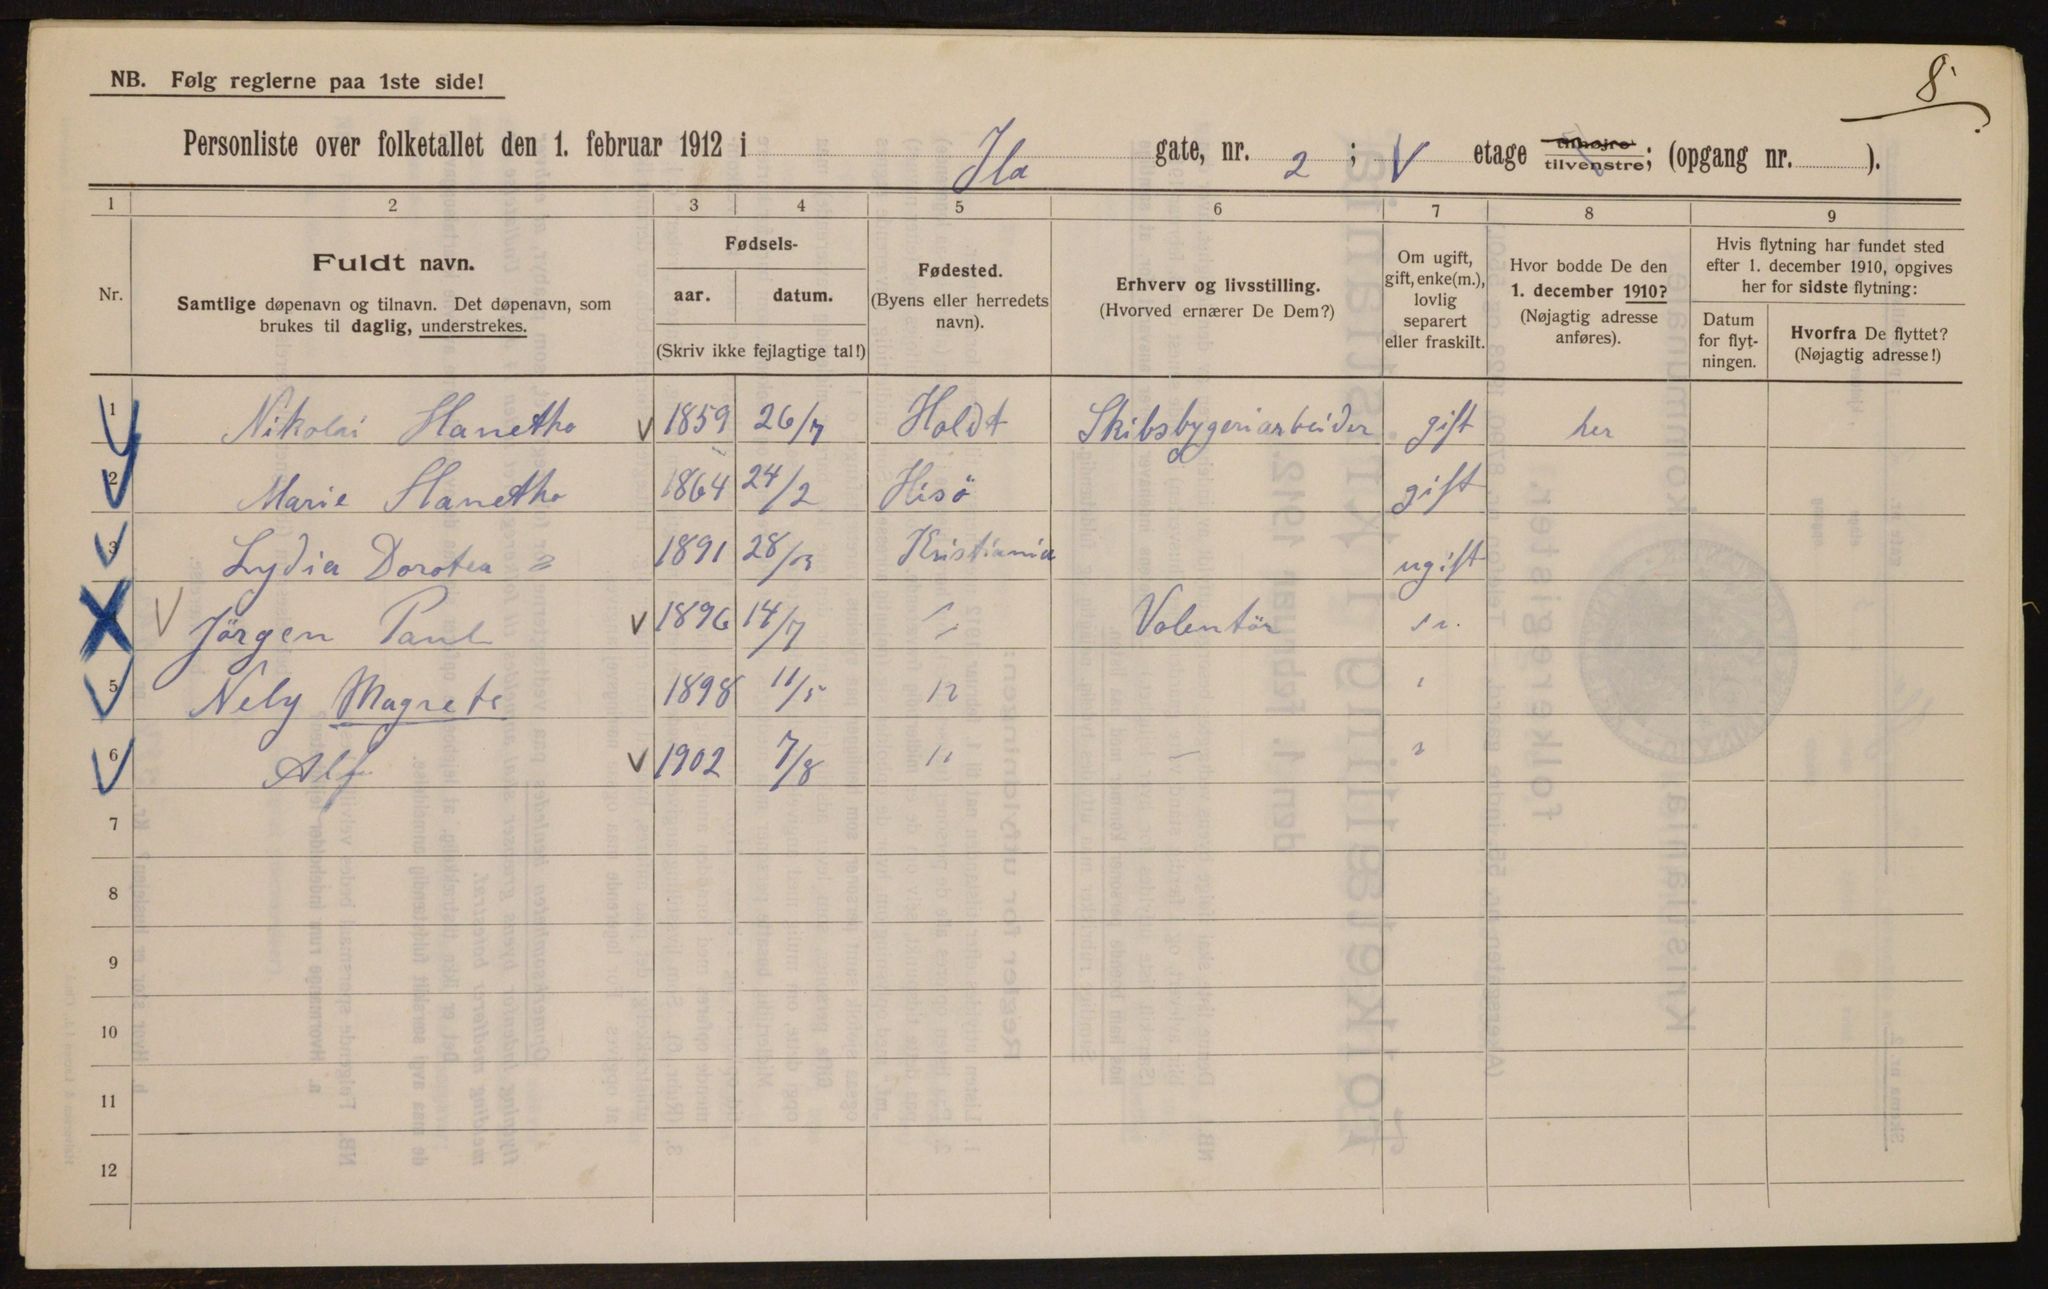 8
NB. Følg reglerne paa 1ste side!
Personliste over folketallet den 1. februar 1912 i Ila gate, nr. 2 ; V etage tilhøjre tilvenstre; (opgang nr. ).
1 2 3 4 5 6 7 8 9
Nr.
Fuldt navn.
Samtlige døpenavn og tilnavn. Det døpenavn, som
brukes til daglig, understrekes.
Fødsels-
aar. datum.
(Skriv ikke fejlagtige tal!)
Fødested.
(Byens eller herredets
navn).
Erhverv og livsstilling.
(Hvorved ernærer De Dem?)
Om ugift,
gift, enke(m.),
lovlig
separert
eller fraskilt.
Hvor bodde De den
1. december 1910?
(Nøjagtig adresse
anføres).
Hvis flytning har fundet sted
efter 1. december 1910, opgives
her for sidste flytning:
Datum
for flyt-
ningen.
Hvorfra De flyttet?
(Nøjagtig adresse!)
1 Nikolai Hanetho 1859 26/7 Holdt Skibsbygeriarbeider gift her
2 Marie Hanetho 1864 24/2 Hisö gift
3 Lydia Dorotea " 1891 28/ Kristiania ugift
Jörgen Paul 1896 14/7 " Volentör "
5 Nely Magrete 1898 11/5 " "
6 Alf 1902 7/8 " — "
7
8
9
10
11
12